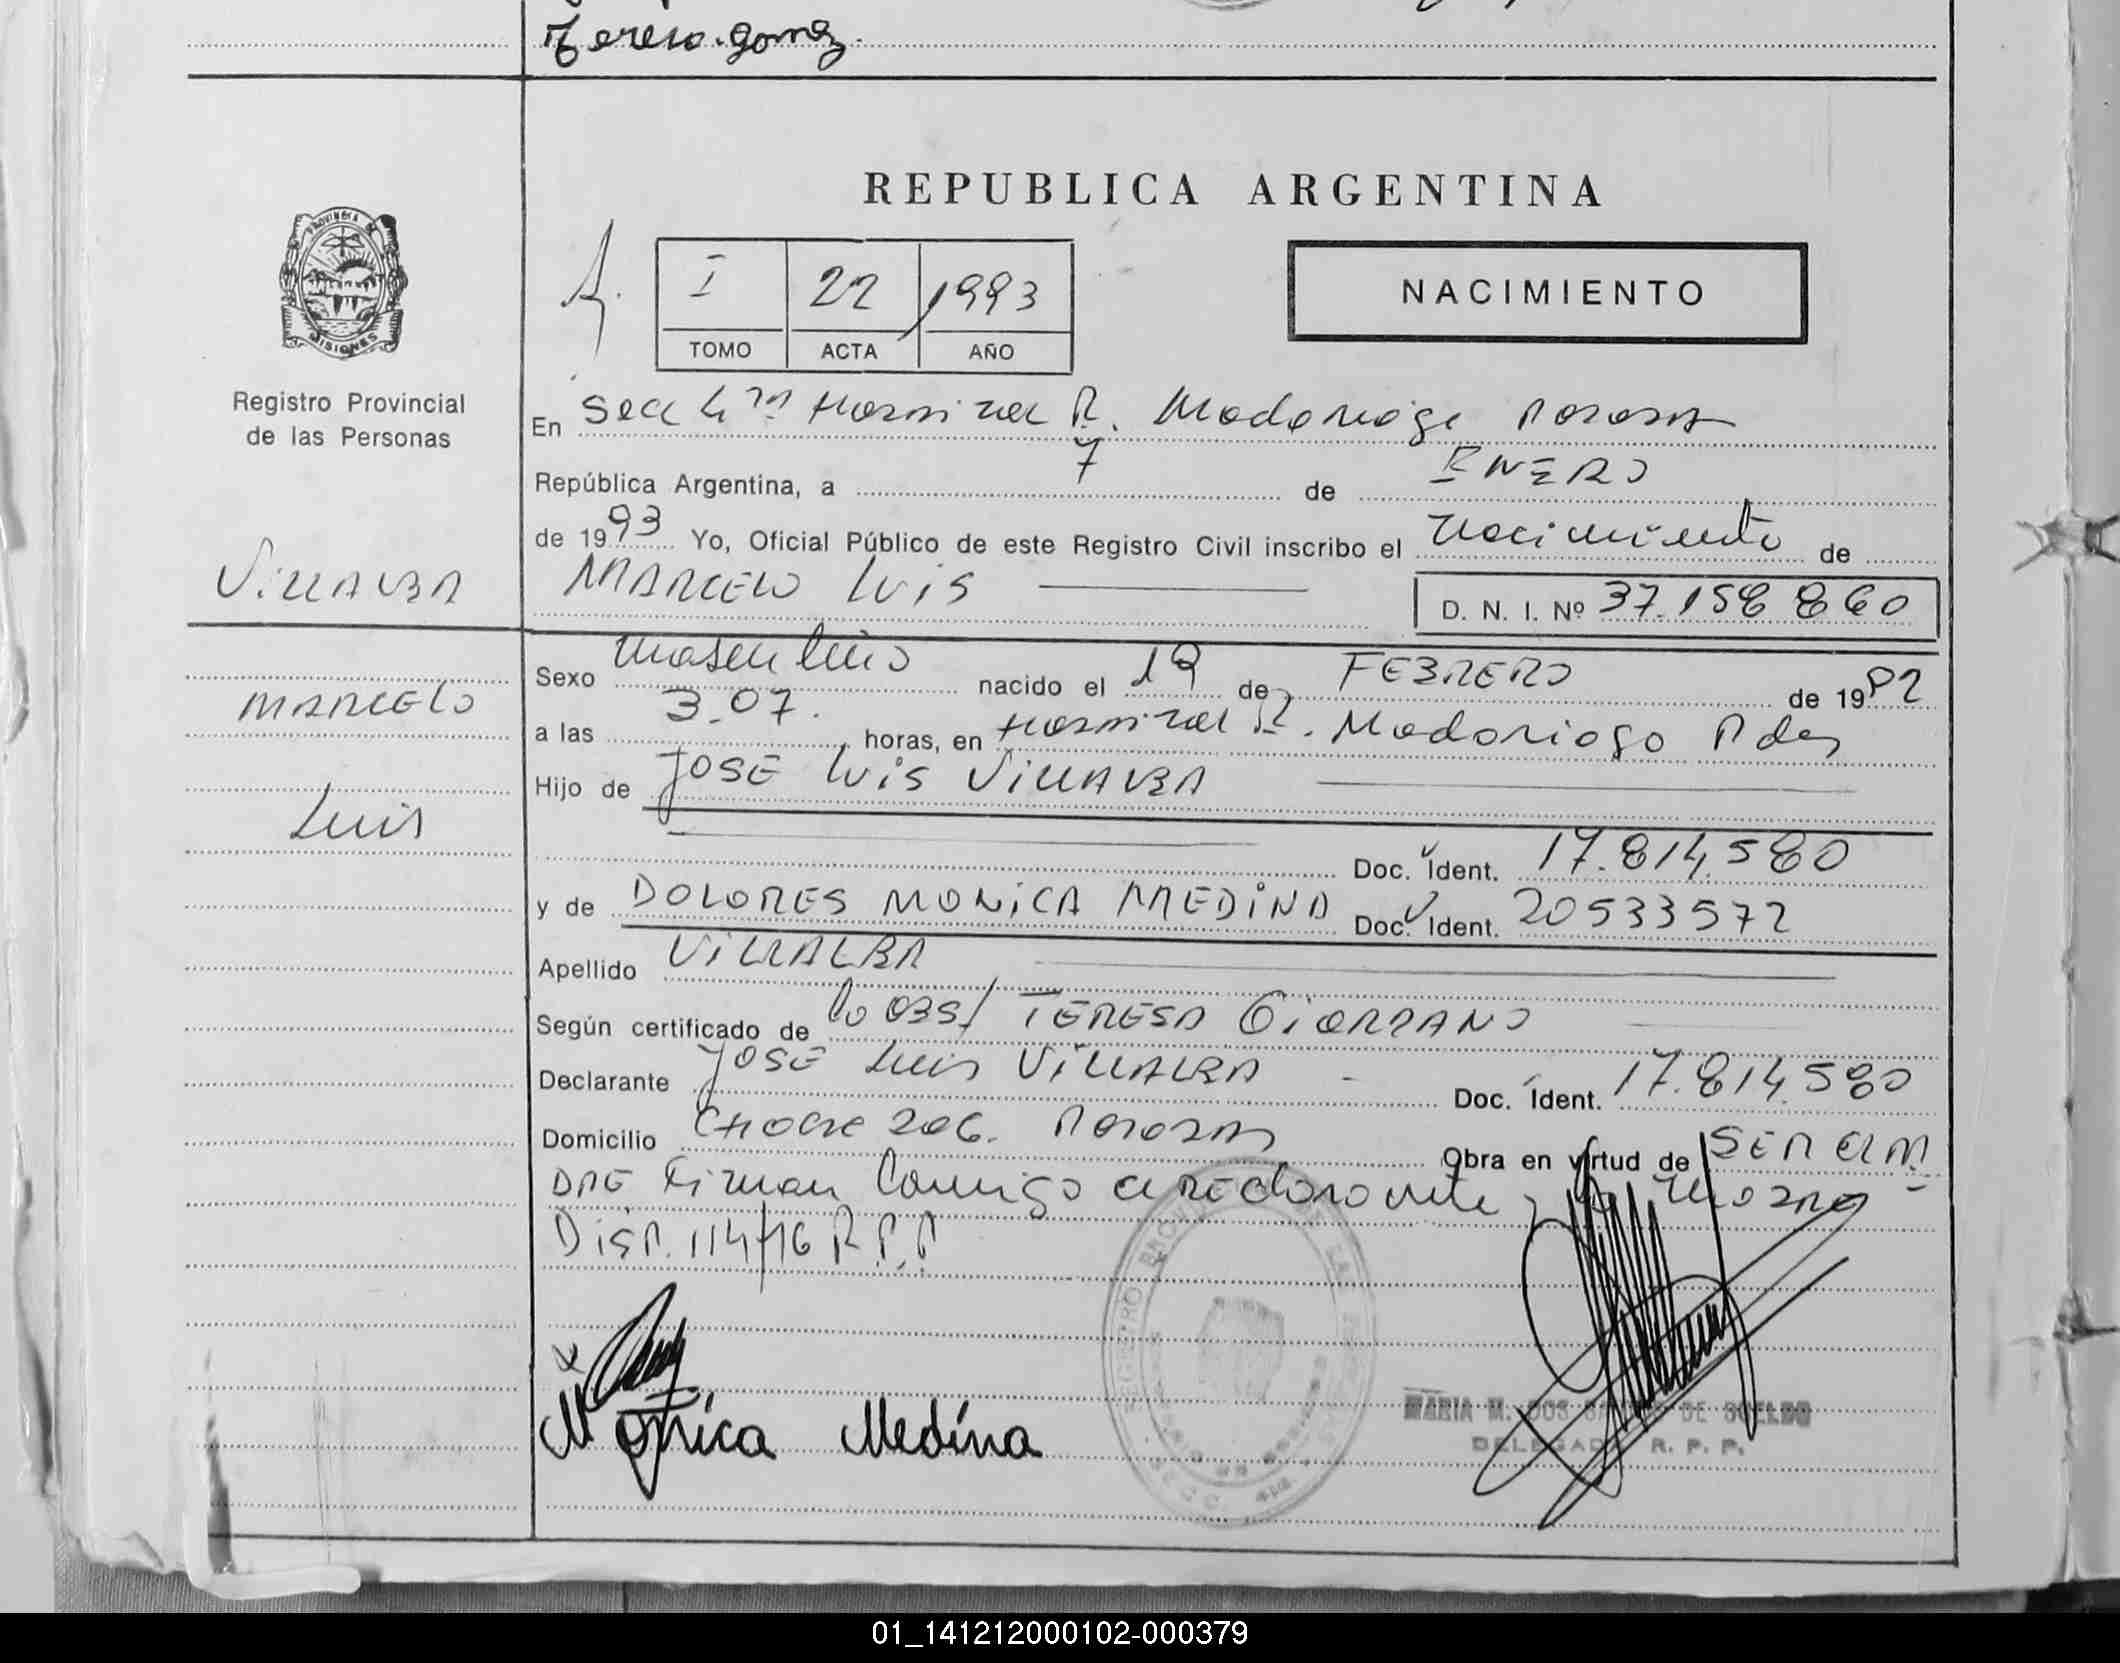 Tereso.gomez
REPUBLICA ARGENTINA
PROVINCIA DE
MISIONES
I 22 1993
TOMO ACTA AÑO
NACIMIENTO
Registro Provincial
de las Personas
En Secc 4ta Hospital R. Madariaga Posadas
República Argentina, a 7 de ENERO
de 1993 Yo, Oficial Público de este Registro Civil inscribo el nacimiento de
VILLALBA
MARCELO LUIS
D. N. I. Nº 37.158 860
MARCELO
Luis
Sexo masculino nacido el 19 de FEBRERO de 1992
a las 3.07. horas, en Hospital R. Madariaga Pdas
Hijo de JOSE LUIS VILLALBA
Doc. Ident. 17.814.580
y de DOLORES MONICA MEDINA Doc. Ident. 20533572
Apellido VILLALBA
Según certificado de TERESA GIORDANO
Declarante JOSE Luis VILLALBA Doc. Ident. 17.814.580
Domicilio 206. Posadas Obra en virtud de SER EL
PADRE Firman Conmigo el declarante y la madre
DISP. 114/76 R.P.P
Monica Medina
REGISTRO PROVINCIAL DE LAS PERSONAS
MARIA M. DOS SANTOS DE SUELDO
DELEGADA R. P. P.
01_141212000102-000379